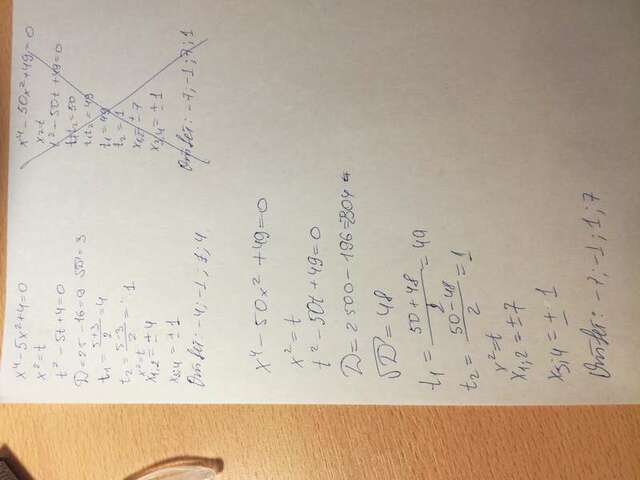 x⁴-5x²+4=0
x²=t
t²-5t+4=0
D=25-16=9 √D=3
t₁=(5+3)/2=4
t₂=(5-3)/2=1
x²=t
x₁,₂=±4
x₃,₄=±1
Ответ: -4; -1; 1; 4
x⁴-50x²+49=0
x²=t
x²-50t+49=0
t₁t₂=49
t₁=49
t₂=1
x₃,₄=±1
Ответ: -7; -1; 7; 1
x⁴-50x²+49=0
x²=t
t²-50t+49=0
D=2500-196=2304
√D=48
t₁=(50+48)/2=49
t₂=(50-48)/2=1
x²=t
x₁,₂=±7
x₃,₄=±1
Ответ: -7; -1; 1; 7